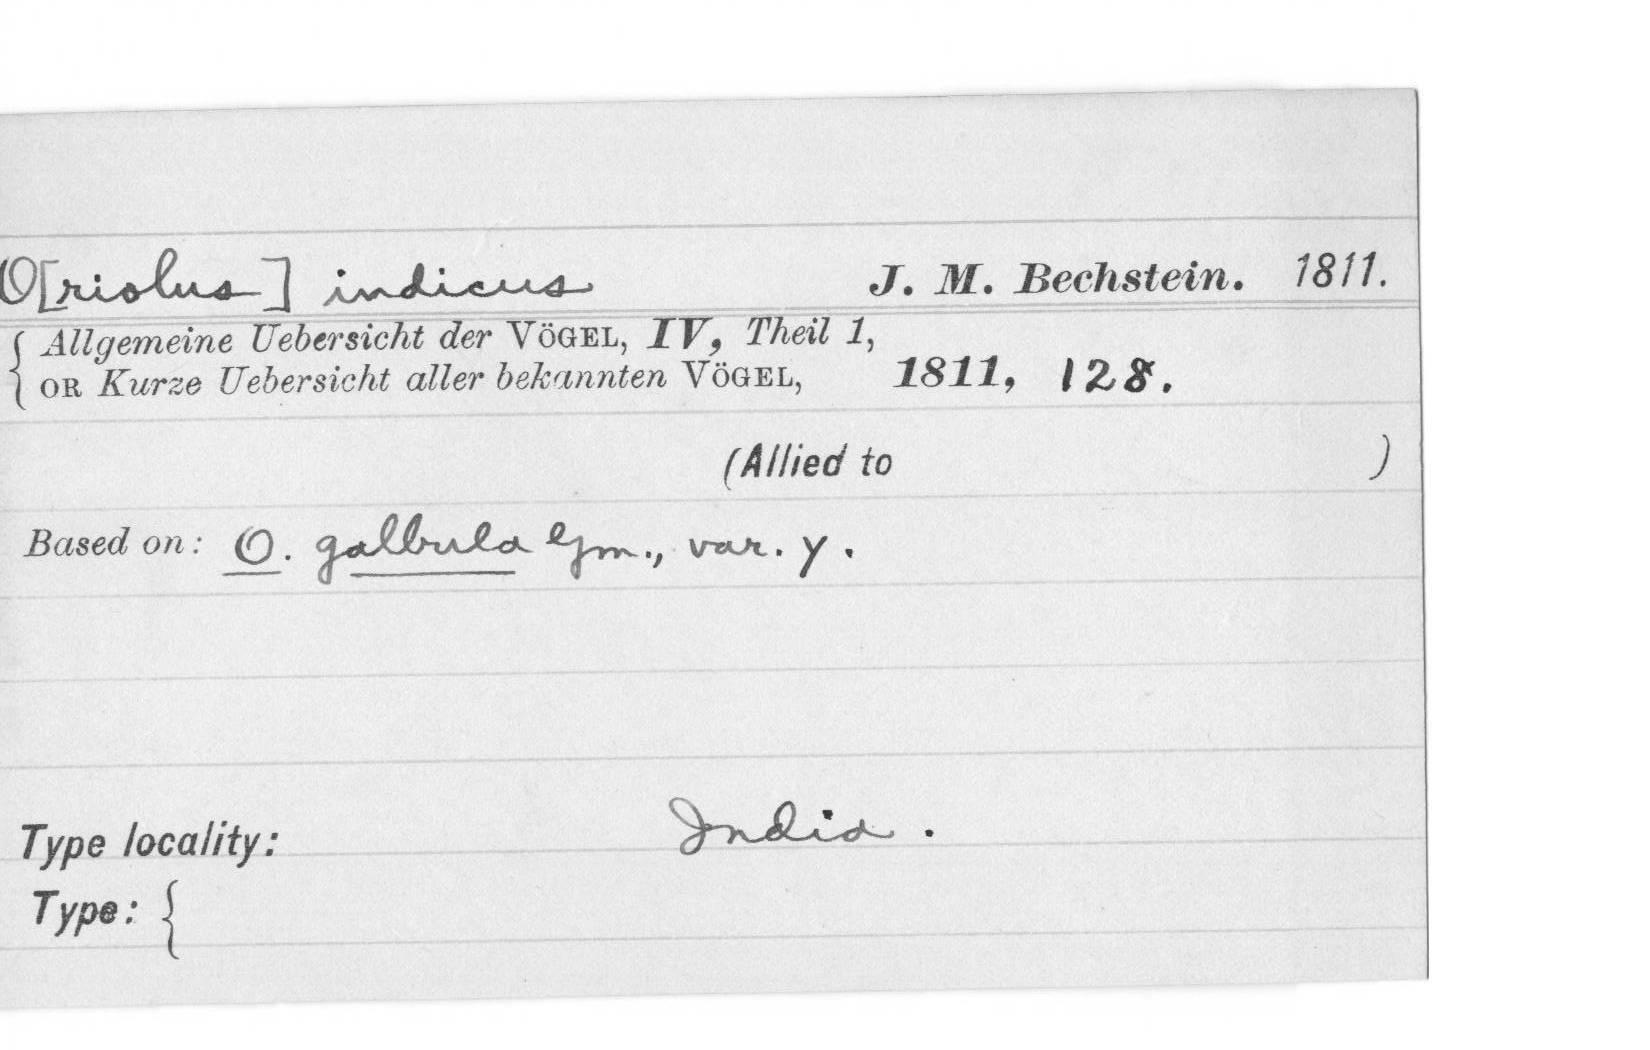 O[riolus] indicus J. M. Bechstein. 1811.
{ Allgemeine Uebersicht der VÖGEL, IV, Theil 1,
OR Kurze Uebersicht aller bekannten VÖGEL, 1811, 128.
(Allied to )
Based on: O. galbula Gm., var. γ.
Type locality: India.
Type: {